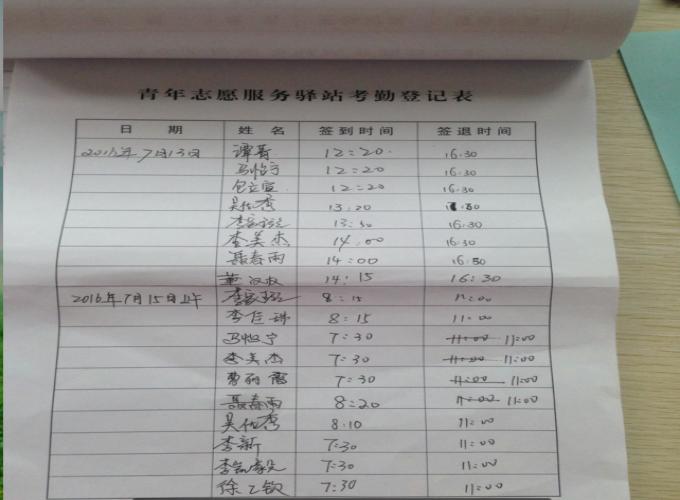 青年志愿服务驿站考勤登记表
日 期 姓 名 签到时间 签退时间
2016年7月13日 谭菁 12:20 16:30
马怡宁 12:20 16:30
12:20 16:30
吴仕秀 13:20 16:30
13:30 16:30
李美杰 14:00 16:30
聂春雨 14:00 16:30
董汉 14:15 16:30
2016年7月15日上午 8:15 11:00
李佳琳 8:15 11:00
马怡宁 7:30 11:00 11:00
李美杰 7:30 11:00 11:00
曹雨 7:30 11:00 11:00
聂春雨 8:20 11:00 11:00
吴仕秀 8:10 11:00
李新 7:30 11:00
李毅 7:30 11:00
徐乙钦 7:30 11:00